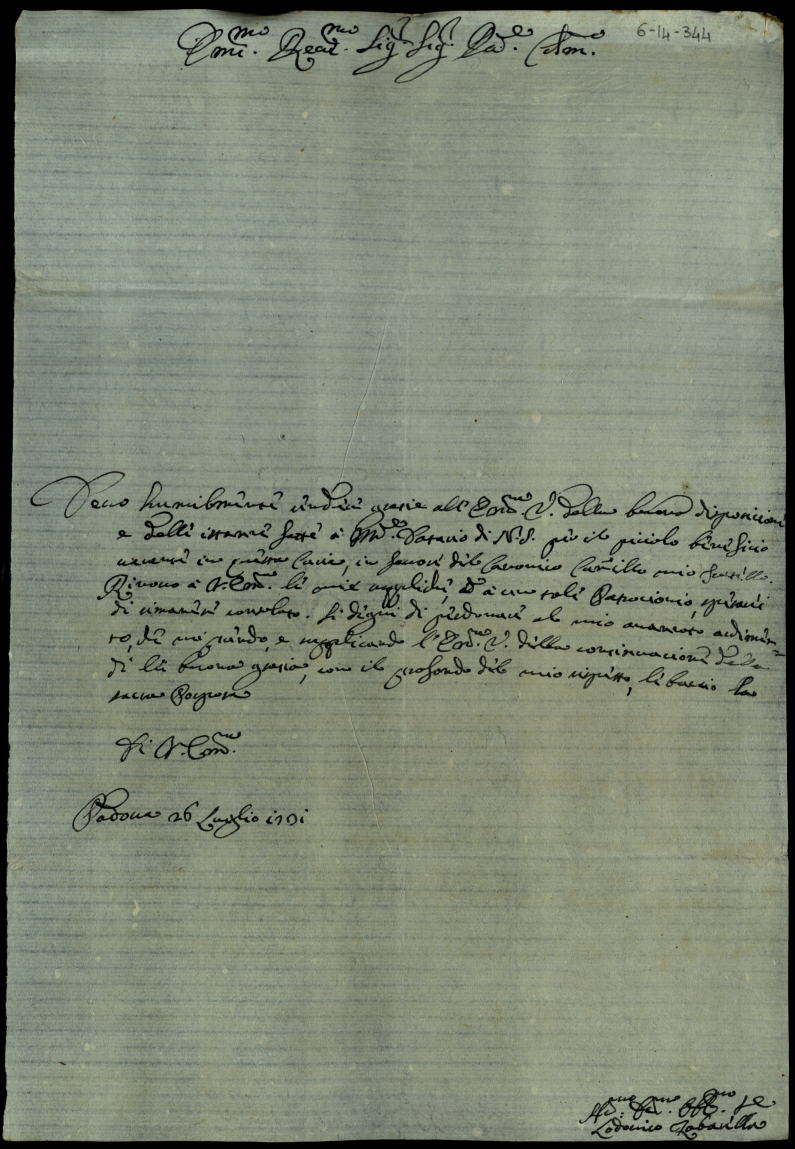 6-14-344
Emi.mo Reat.mo Sig.r Sig.r Pad.e
Devo humilmente render gratie all'Em.mo V. della buona dispositione
e delle instanze fatte à Datario di N.S. per il piccolo beneficio
vacante in questa Città, in favore del Canonico Camillo mio fratello.
Rinovo à V. Em.ma le mie suppliche, à un tale Patrocinio,
di rimanere consolato. Si degni di perdonare al mio avanzato ardimen=
to, e supplicando l'Em.mo V. della continuatione della
di lei buona gratia, con il profondo del mio rispetto, li bacio la
sacra Porpora
Di V. Em.ma
Padova 26 Luglio 1701
Obl.mo
Lodovico Zabarella